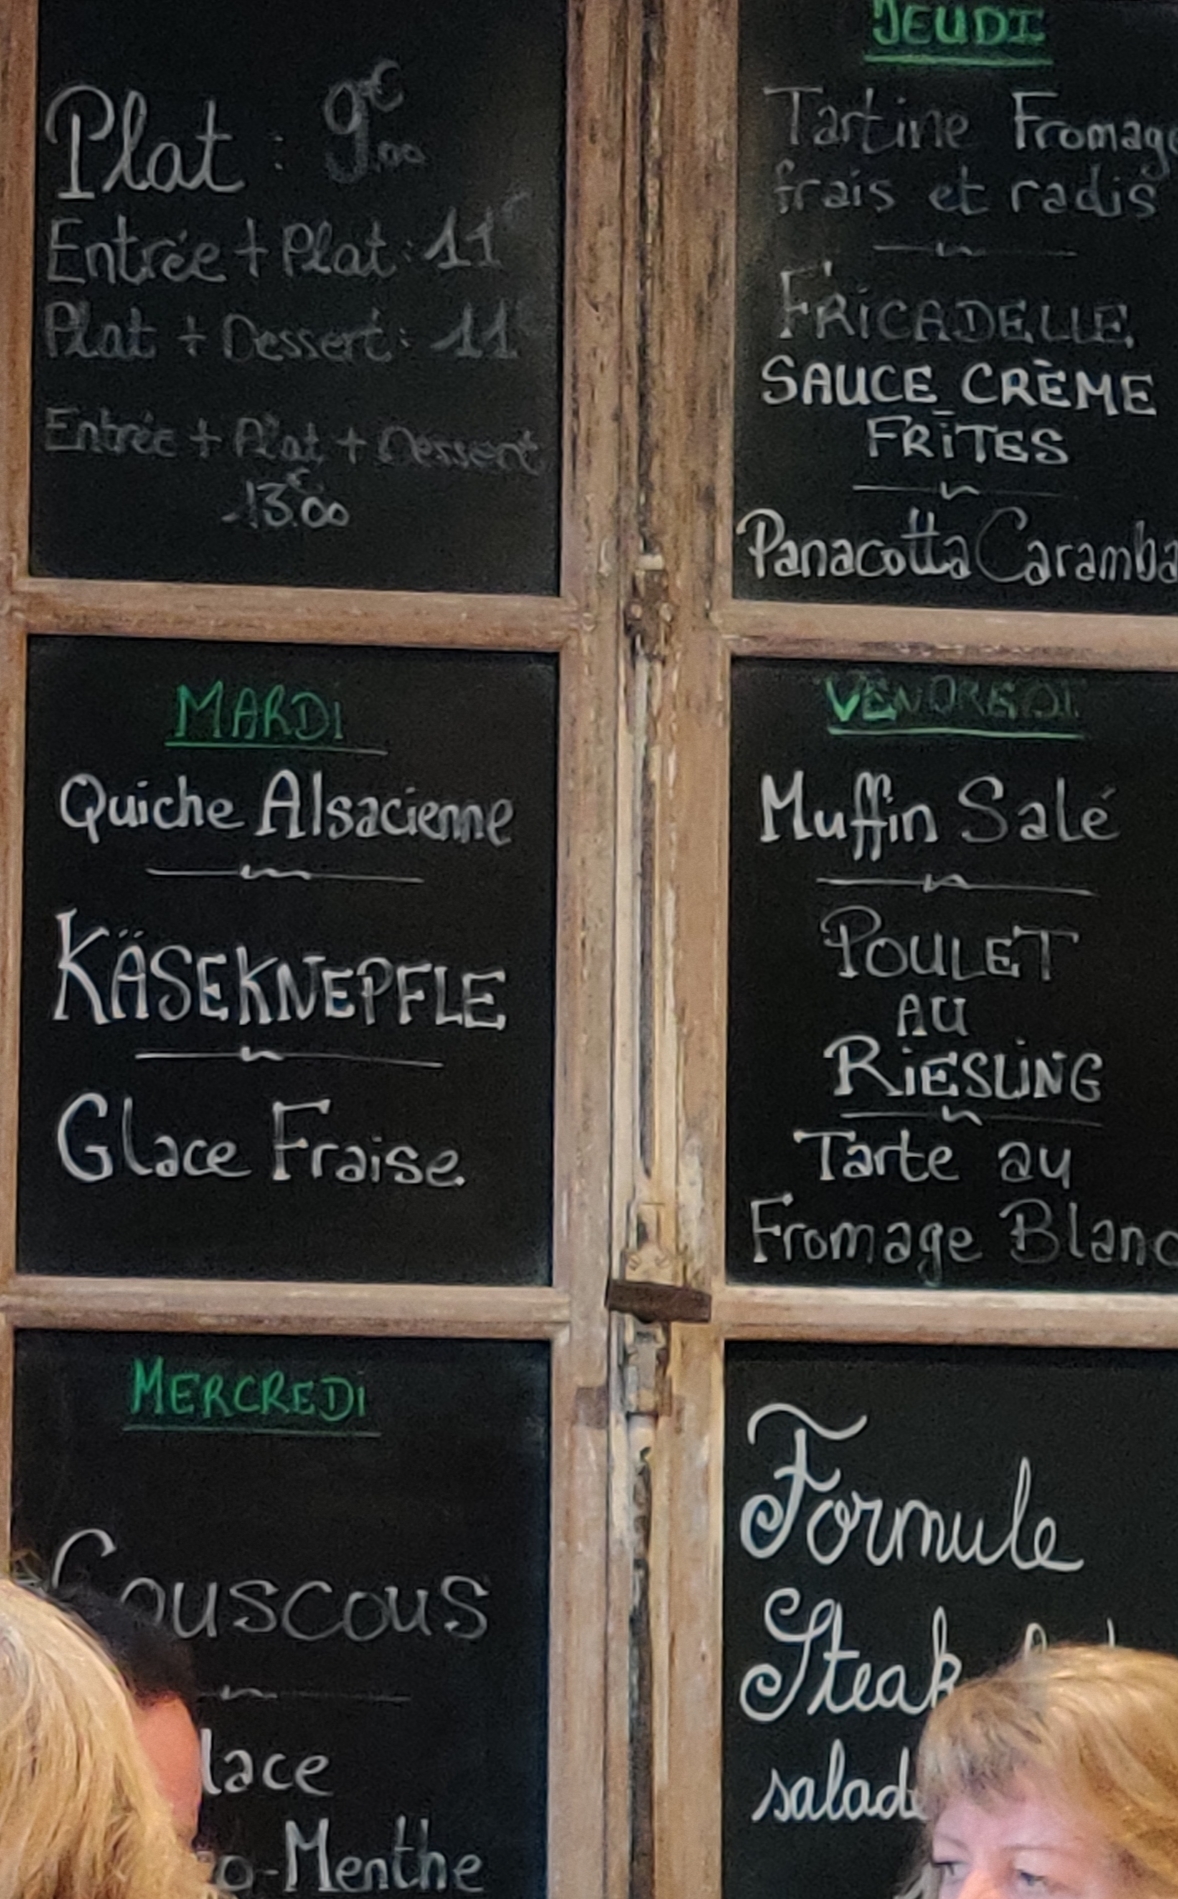 Plat : 9€.00
Entrée + Plat : 11€
Plat + Dessert : 11€
Entrée + Plat + Dessert
13€.00
MARDI
Quiche Alsacienne
KÄSEKNEPFLE
Glace Fraise
MERCREDI
Couscous
lace
o-Menthe
JEUDI
Tartine Fromage
frais et radis
FRICADELLE
SAUCE CRÈME
FRITES
Panacotta Caramba
VENDREDI
Muffin Salé
POULET
AU
RIESLING
Tarte au
Fromage Blanc
Formule
Steak
salade